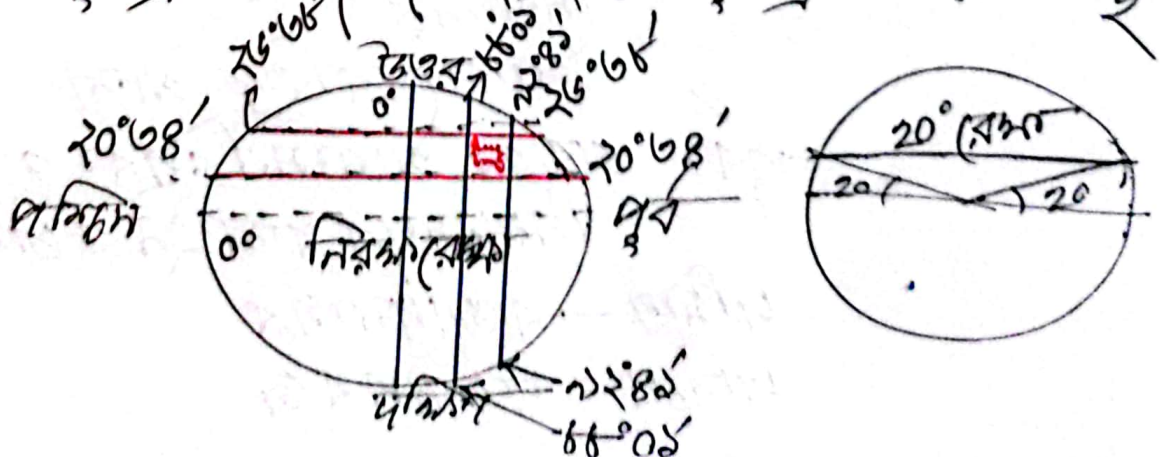 ২৬°৩৮′
উত্তর
৮৮°০১′
৯২°৪১′
২৬°৩৮′
0°
২০°৩৪′
২০°৩৪′
পশ্চিম
পূর্ব
0°
নিরক্ষরেখা
দক্ষিণ
৯২°৪১′
৮৮°০১′
20° রেখা
20
20